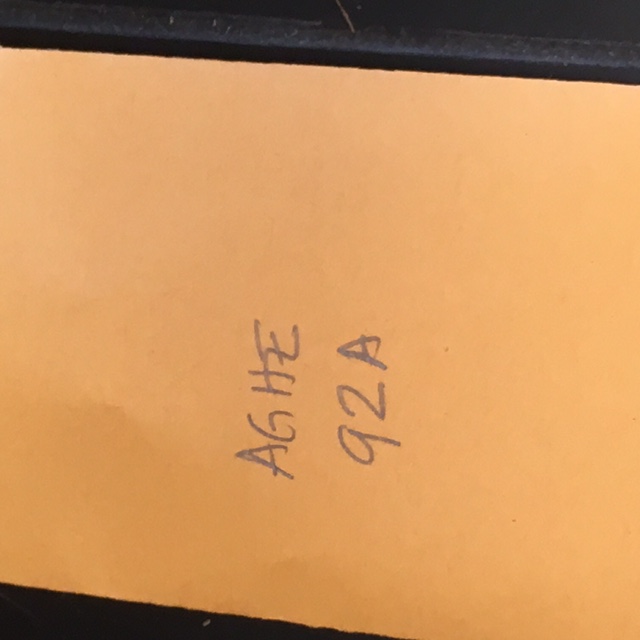 AGHE
92A